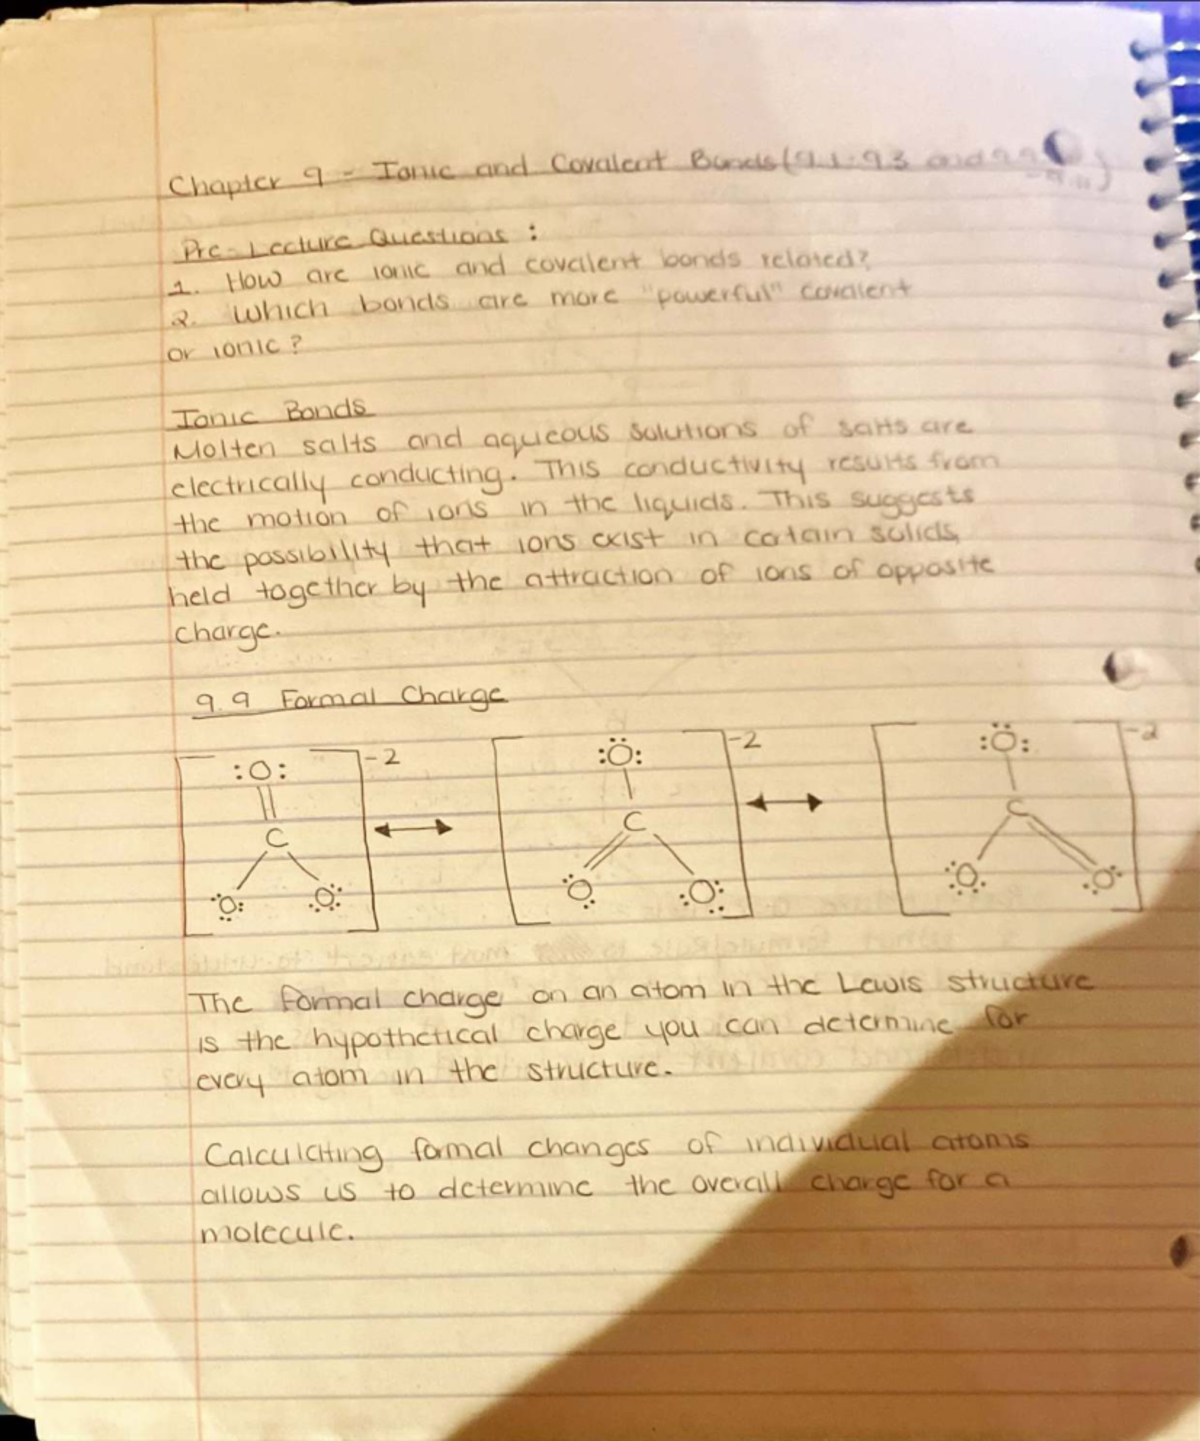 Chapter 9 - Ionic and Covalent Bonds (9.1-9.3 and 9.9
Pre-Lecture Questions :
1. How are ionic and covalent bonds related?
2. Which bonds are more "powerful" covalent
or ionic?
Ionic Bonds
Molten salts and aqueous solutions of salts are
electrically conducting. This conductivity results from
the motion of ions in the liquids. This suggests
the possibility that ions exist in certain solids,
held together by the attraction of ions of opposite
charge.
9.9 Formal Charge
:O: -2 :Ö: -2 :Ö: -2
C C C
O O O O O O
The formal charge on an atom in the Lewis structure
is the hypothetical charge you can determine for
every atom in the structure.
Calculating formal changes of individual atoms
allows us to determine the overall charge for a
molecule.